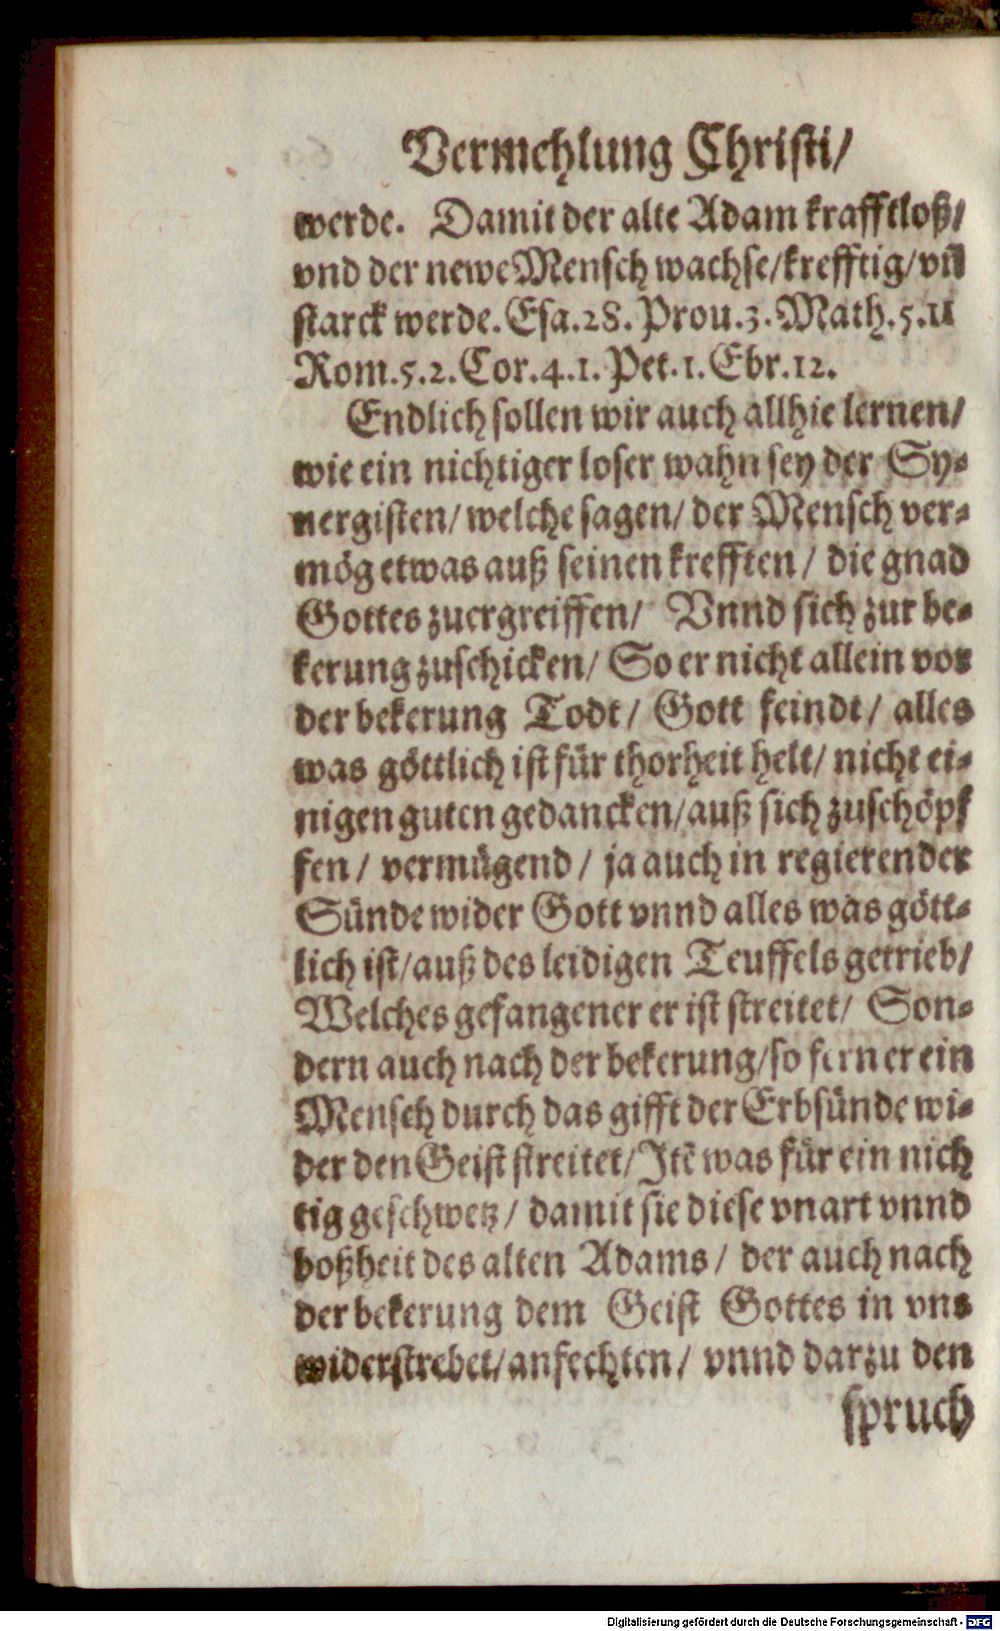 Vermehlung Christi/
werde. Damit der alte Adam krafftloß/
vnd der newe Mensch wachse/krefftig/vñ
starck werde. Esa.28. Prou.3. Math.5.11
Rom.5.2. Cor.4.1. Pet.1. Ebr.12.
Endlich sollen wir auch allhie lernen/
wie ein nichtiger loser wahn sey der Sy-
nergisten/ welche sagen/ der Mensch ver-
mög etwas auß seinen krefften/ die gnad
Gottes zuergreiffen/ Vnnd sich zur be-
kerung zuschicken/ So er nicht allein vor
der bekerung Todt/ Gott feindt/ alles
was göttlich ist für thorheit helt/ nicht ei-
nigen guten gedancken/auß sich zuschöpf
fen/ vermügend/ ja auch in regierender
Sünde wider Gott vnnd alles was gött-
lich ist/auß des leidigen Teuffels getrieb/
Welches gefangener er ist streitet/ Son-
dern auch nach der bekerung/so fern er ein
Mensch durch das gifft der Erbsünde wi-
der den Geist streitet/Itē was für ein nich
tig geschwetz/ damit sie diese vnart vnnd
boßheit des alten Adams/ der auch nach
der bekerung dem Geist Gottes in vns
widerstrebet/anfechten/ vnnd darzu den
spruch
Digitalisierung gefördert durch die Deutsche Forschungsgemeinschaft - DFG